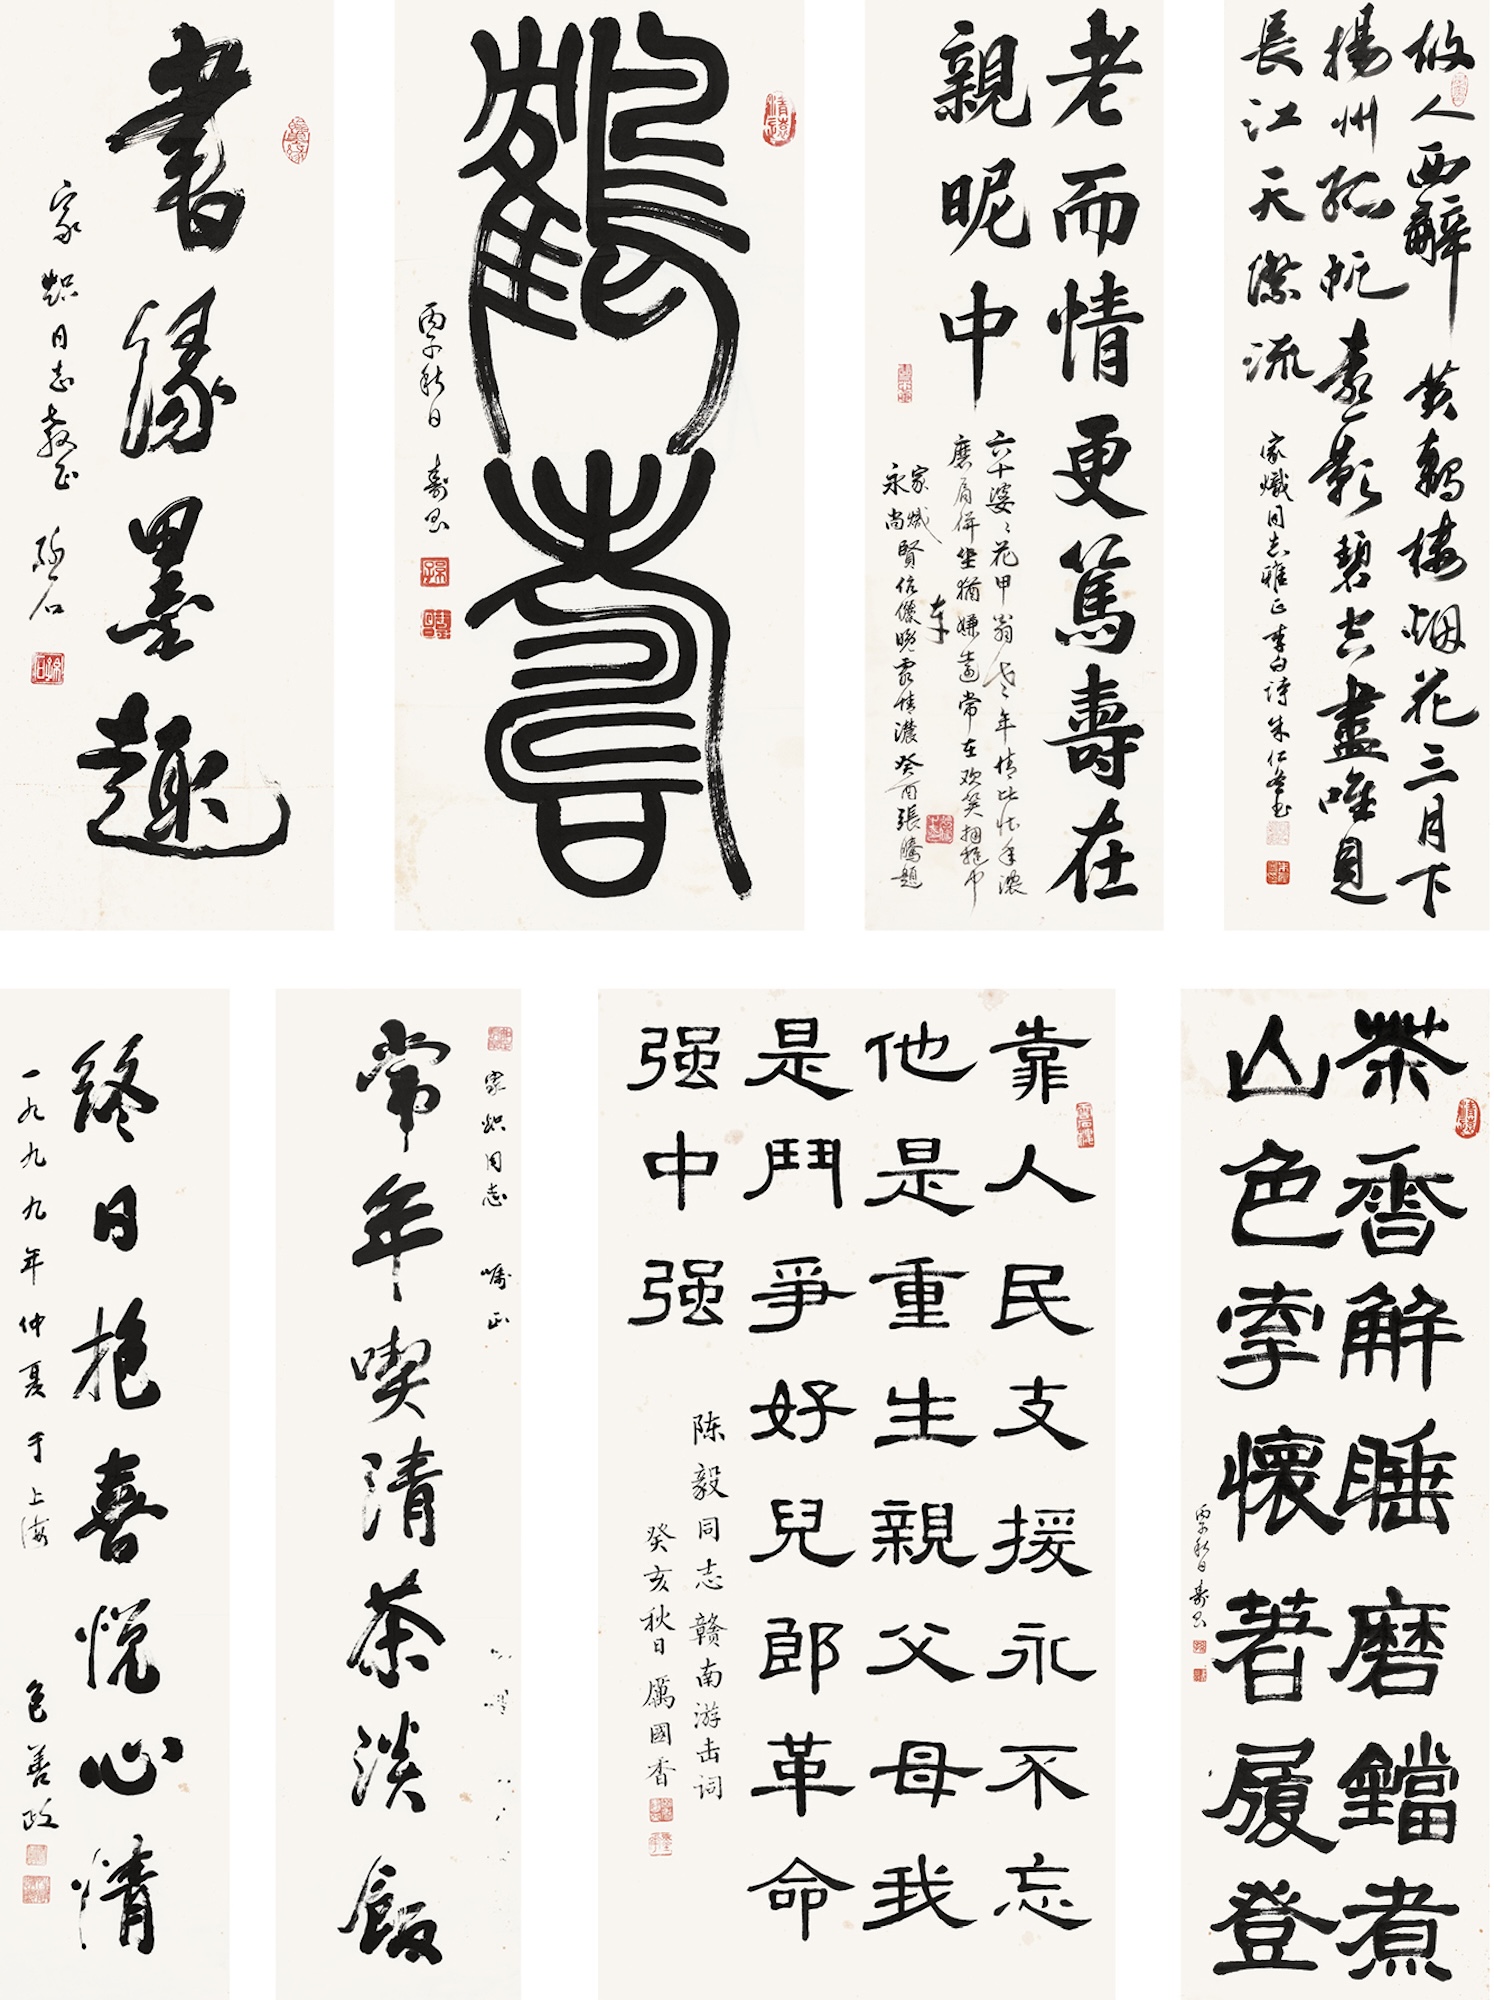 故人西辞黄鹤楼烟花三月下
扬州孤帆远影碧空尽唯见
长江天际流
家炽同志雅正李白诗朱仁冬书
老而情更篤壽在
親昵中
六十婆婆花甲翁
年情比
磨肩併坐猶嫌遠常在欢笑拥抱中
家炽
永尚
賢伉儷晚霞情濃癸酉張騰題
鶴壽
丙子秋日 寿
書缘墨趣
家炽同志教正
茶香解睡磨鐺煮
山色牽懷著屐登
丙子秋日寿
靠人民支援永不忘
他是重生親父母我
是鬥爭好兒郎革命
强中强
陈毅同志赣南游击词
癸亥秋日厲國香
家炽同志 嘱正
常年喫清茶淡飯
终日抱喜悦心情
一九九九年仲夏于上海 包善政